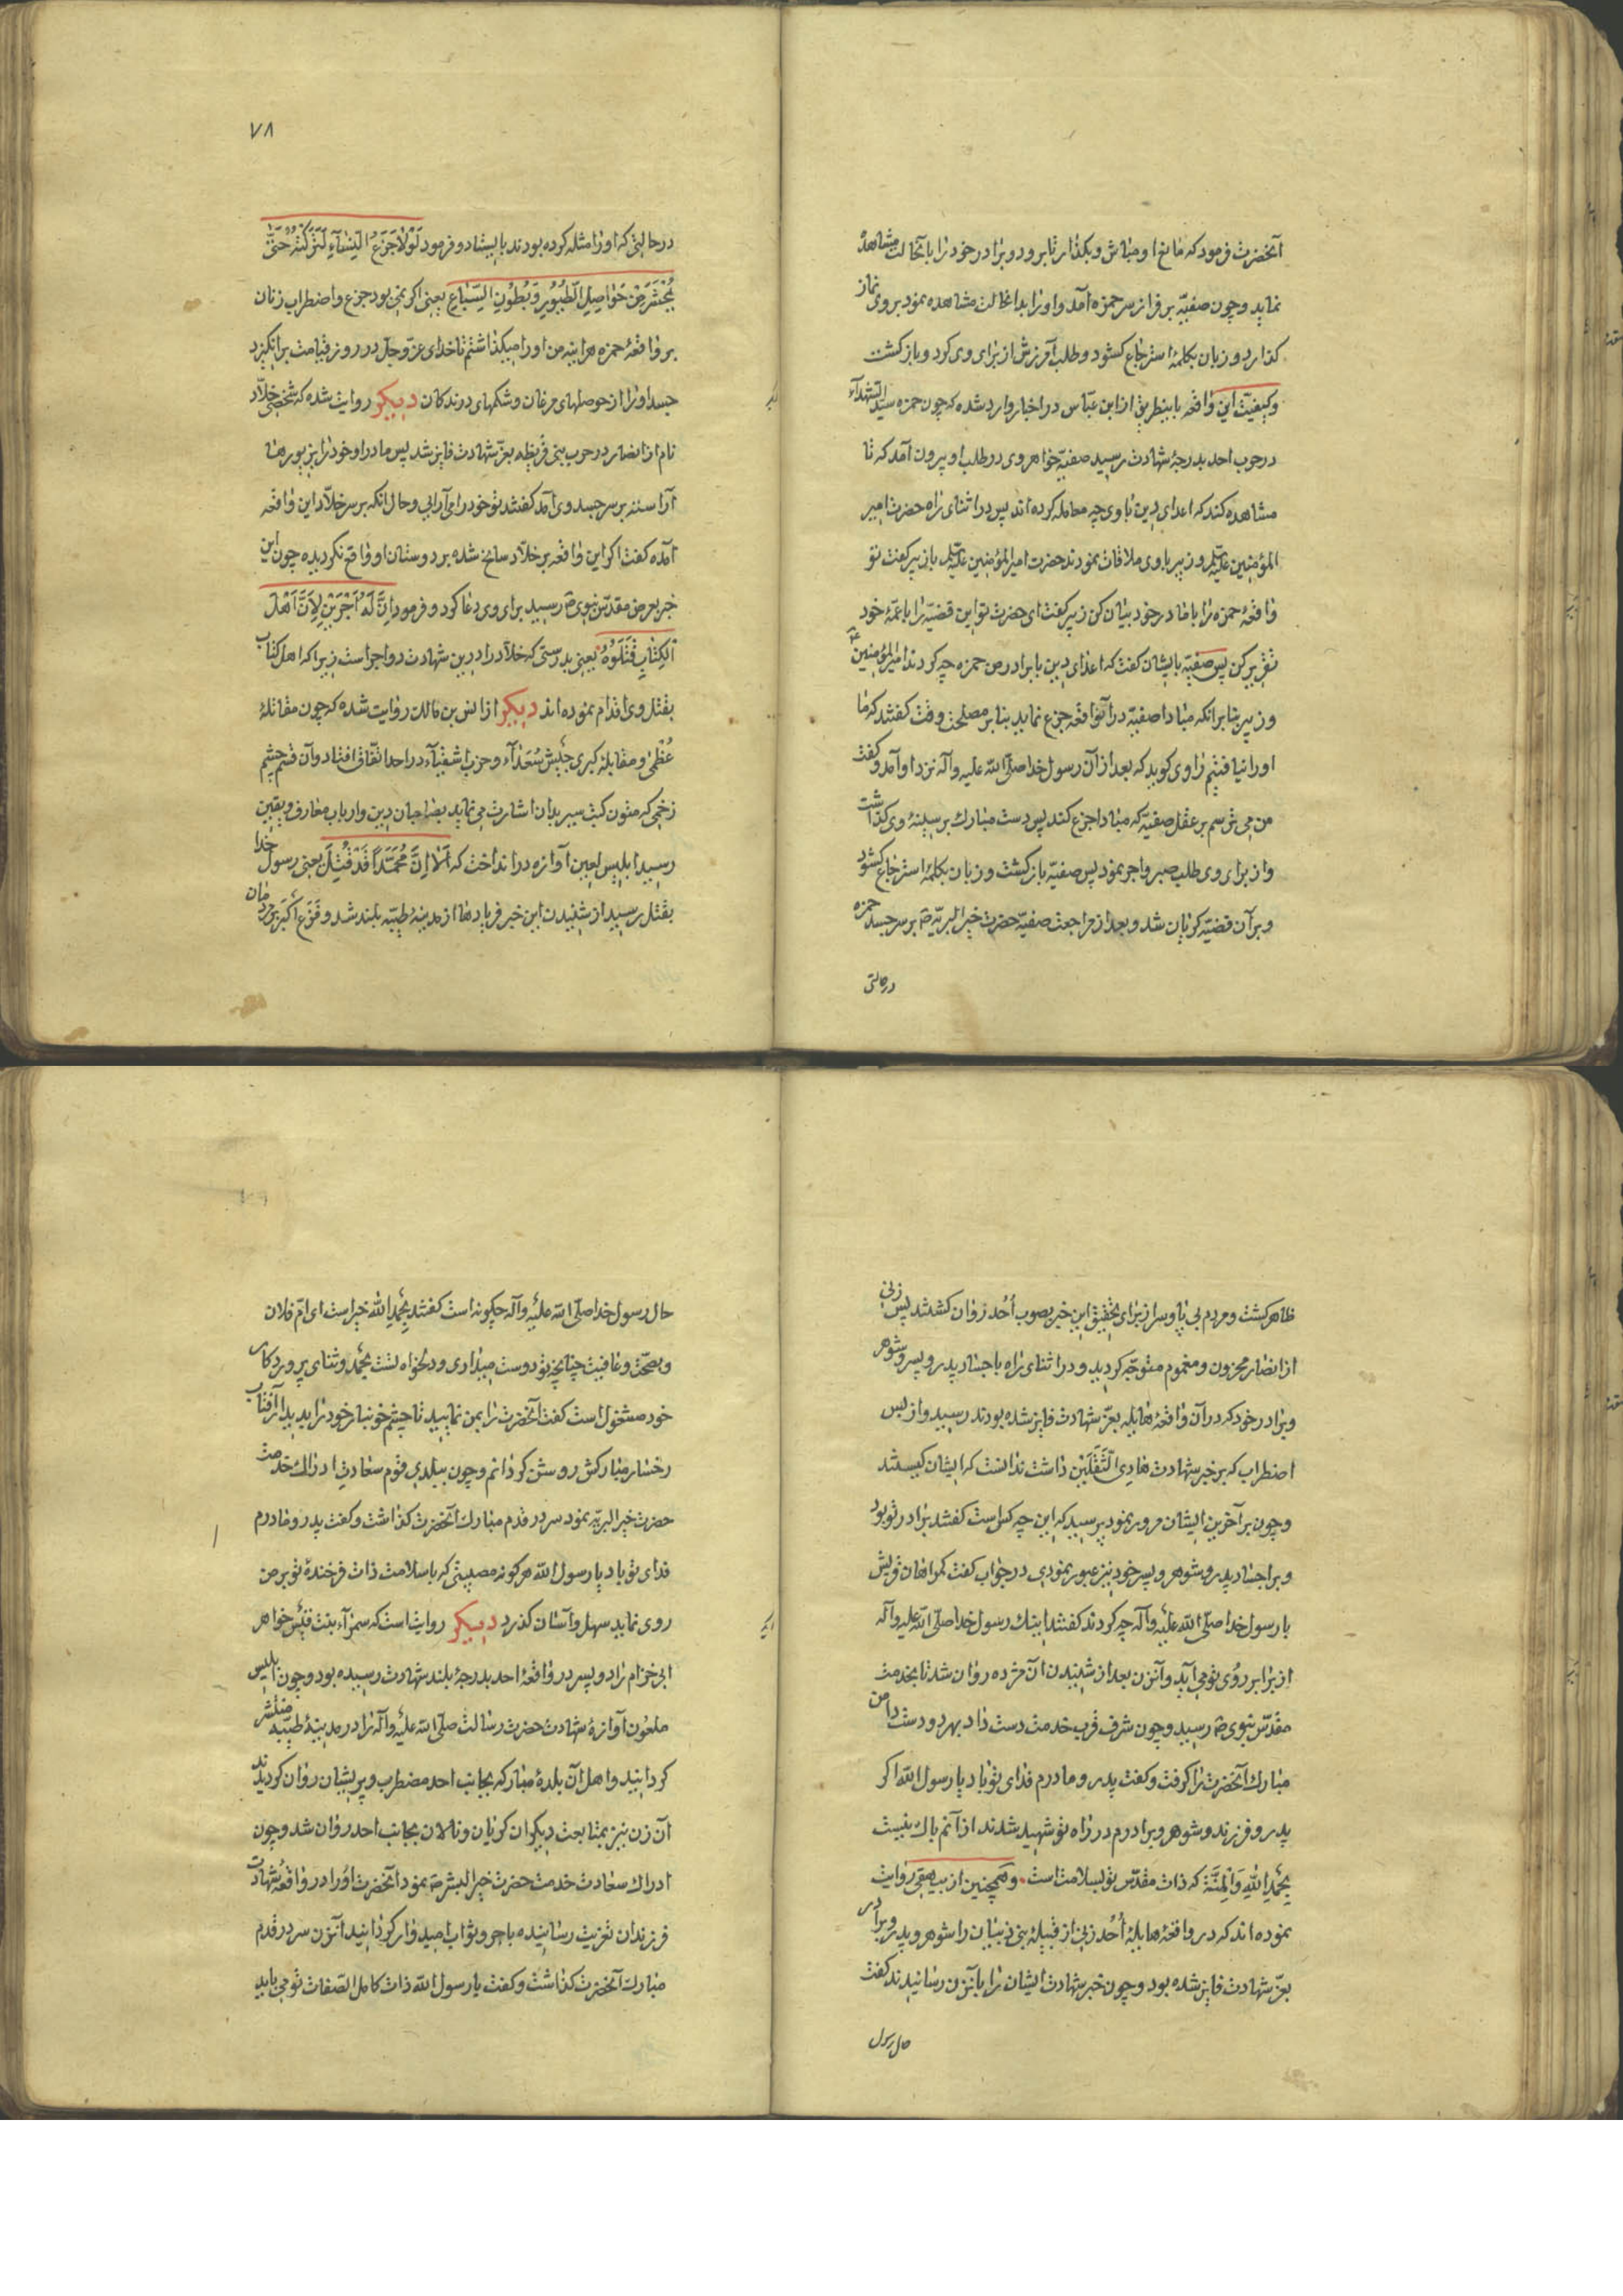 آنحضرت فرمود که مانع او مباش و بگذار تا برود و برادر خود را بآنحالت مشاهدهٔ
نماید و چون صفیّه بر فراز سر حمزه آمد و او را بدانحالت مشاهده نمود بر وی نماز
گذارد و زبان بکلمهٔ استرجاع گشود و طلب آمرزش از برای وی کرد و باز گشت
و کیفیّت این واقعه باینطریق از ابن عبّاس در اخبار وارد شده که چون حمزه سیّد الشّهدآء
در حرب احد بدرجهٔ شهادت رسید صفیّه خواهر وی در طلب او بیرون آمد که تا
مشاهده کند که اعدای دین با وی چه معامله کرده‌اند پس در اثنای راه حضرت امیر
المؤمنین علیّه السلم و زبیر با وی ملاقات نمودند حضرت امیر المؤمنین علیّه السلم با زبیر گفت تو
واقعهٔ حمزه را با مادر خود بیان کن زبیر گفت ای حضرت تو این قضیّه را با عمّهٔ خود
تقریر کن پس صفیّه بایشان گفت که اعدای دین با برادر من حمزه چه کردند امیر المؤمنین ع
و زبیر بنا بر انکه مبادا صفیّه در آنواقعه جزع نماید بنا بر مصلحت وقت گفتند که ما
او را نیافتیم راوی گوید که بعد از آن رسول خدا صلّی الله علیه و آله نزد او آمد و گفت
من می ترسم بر عقل صفیّه که مبادا جزع کند پس دست مبارک بر سینهٔ وی گذاشت
و از برای وی طلب صبر و اجر نمود پس صفیّه باز گشت و زبان بکلمهٔ استرجاع گشود
و بر آن قضیّه گریان شد و بعد از مراجعت صفیّه حضرت خیر البریّه ص بر سر جسد حمزه
در حالتی
۷۸
در حالتی که او را مثله کرده بودند بایستاد و فرمود لَوْلاٰ جَزَعُ النِّسٰآءِ لَتَرَكْتُهُ حَتّٰى
يُحْشَرَ مِنْ حَوٰاصِلِ الطُّيُورِ وَبُطُوْنِ السِّبٰاعِ یعنی اگر نمی بود جزع و اضطراب زنان
بر واقعهٔ حمزه هر اینه من او را میگذاشتم تا خدای عزّ و جلّ در روز قیامت بر انگیزد
جسد او را از حوصلهای مرغان و شکمهای درندگان دیگر روایت شده که شخصی خلاّد
نام از انصار در حرب بنی قریظه بعزّ شهادت فایز شد پس مادر او خود را بزیورها
آراسته بر سر جسد وی آمد گفتند تو خود را می آرایی و حال انکه بر سر خلاّد این واقعه
آمده گفت اگر این واقعه بر خلاّد سانح شده بر دوستان او واقع نگردیده چون این
خبر بعرض مقدّس نبوی ص رسید برای وی دعا کرد و فرمود اِنَّ لَهُ اَجْرَيْنِ لِاَنَّ اَهْلَ
الْكِتٰابِ قَتَلُوْهُ یعنی بدرستی که خلاّد را در این شهادت دو اجر است زیرا که اهل کتاب
بقتل وی اقدام نموده‌اند دیگر از انس بن مالک روایت شده که چون مقاتلهٔ
عُظمٰی و مقابلهٔ کبری جَیْش سُعَدٰآء و حزب اشقیآء در احد اتّفاق افتاد و آن قسم چشم
زخمی که متون کتب سیر بدان اشارت می نماید بصاحبان دین و ارباب معارف و یقین
رسید ابلیس لعین آوازه در انداخت که اَلاٰ اِنَّ مُحَمَّداً قَدْ قُتِلَ یعنی رسول خدا
بقتل رسید از شنیدن این خبر فریادها از مدینهٔ طیّبه بلند شد و فَزَع اکبر بر مردمان
ظاهر گشت و مردم بی پا و سر از برای تحقیق این خبر بصوب اُحُد روان گشتند پس زنی
از انصار محزون و مغموم متوجّه گردید و در اثنای راه باجساد پدر و پسر و شوهر
و برادر خود که در آن واقعهٔ هایله بعزّ شهادت فایز شده بودند رسید و از بس
اضطراب که بر خبر شهادت هادی الثَّقَلَيْن داشت ندانست که ایشان کیستند
و چون بر آخرین ایشان مرور نمود پرسید که این چه کس است گفتند برادر تو بود
و بر اجساد پدر و شوهر و پسر خود نیز عبور نمودی در جواب گفت گمراهان قریش
با رسول خدا صلّی الله علیه و آله چه کردند گفتند اینک رسول خدا صلّی الله علیه و آله
از برابر رُوی تو می آید و آنزن بعد از شنیدن آن مژده روان شد تا بخدمت
مقدّس نبوی ص رسید و چون شرف قرب خدمت دست داد بهر دو دست دامن
مبارک آنحضرت را گرفت و گفت پدر و مادرم فدای تو باد یا رسول الله اگر
پدر و فرزند و شوهر و برادرم در راه تو شهید شدند از آنم باک نیست
بِحَمْدِ اللهِ وَالْمِنَّة که ذات مقدّس تو بسلامت است و همچنین از بیهقی روایت
نموده‌اند که در واقعهٔ هایلهٔ اُحُد زنی از قبیلهٔ بنی ذبیان را شوهر و پدر و برادر
بعزّ شهادت فایز شده بود و چون خبر شهادت ایشان را بآنزن رسانیدند گفت
حال رسول
حال رسول خدا صلّی الله علیه و آله چگونه است گفتند بِحَمْدِ الله خیر است ای امّ فلان
و بصحّت و عافیت چنانچه تو دوست میداری و دلخواه تست بحمد و ثنای پروردگار
خود مشغول است گفت آنحضرت را بمن نمایید تا چشم خونبار خود را بدیدار آفتاب
رخسار مبارکش روشن گردانم و چون ببلدی قوم سعادت ادراک خدمت
حضرت خیر البریّه نمود سر در قدم مبارک آنحضرت گذاشت و گفت پدر و مادرم
فدای تو باد یا رسول الله هر گونه مصیبتی که با سلامت ذات فرخندهٔ تو بر من
روی نماید سهل و آسان گذرد دیگر روایت است که سمرآء بنت قیس خواهر
ابی خزام را دو پسر در واقعهٔ احد بدرجهٔ بلند شهادت رسیده بود و چون ابلیس
ملعون آوازهٔ شهادت حضرت رسالت صلّی الله علیه و آله را در مدینهٔ طیّبه منتشر
گردانید و اهل آن بلدهٔ مبارکه بجانب احد مضطرب و پریشان روان گردیدند
آن زن نیز بمتابعت دیگران گریان و نالان بجانب احد روان شد و چون
ادراک سعادت خدمت حضرت خیر البشر ص نمود آنحضرت او را در واقعهٔ شهادت
فرزندان تعزیت رسانیده باجر و ثواب امیدوار گردانید آنزن سر در قدم
مبارک آنحضرت گذاشت و گفت یا رسول الله ذات کامل الصّفات تو می باید